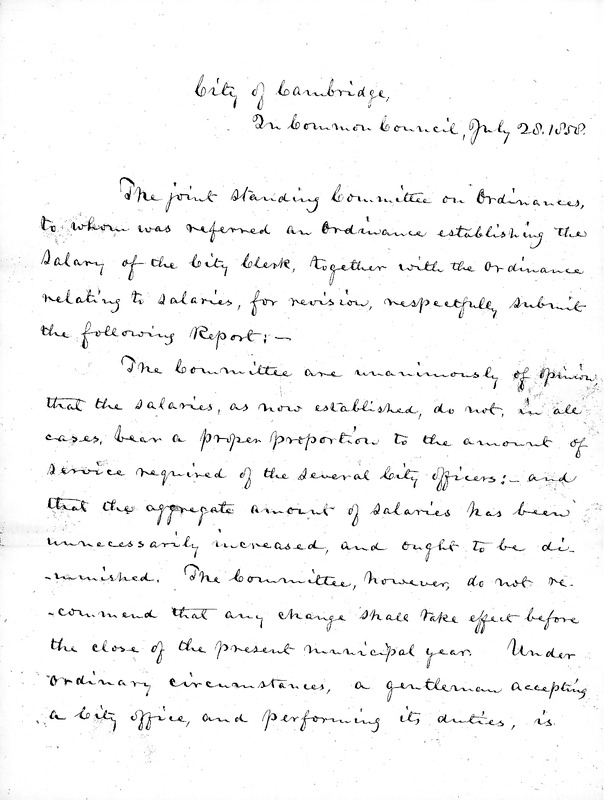 City of Cambridge,
In Common Council, July 28. 1858.
The joint standing Committee on Ordinances,
to whom was referred an Ordinance establishing the
Salary of the City Clerk, together with the Ordinance
relating to salaries, for revision, respectfully submit
the following Report: —
The Committee are unanimously of opinion,
that the salaries, as now established, do not, in all
cases, bear a proper proportion to the amount of
service required of the several City officers: — and
that the aggregate amount of salaries has been
unnecessarily increased, and ought to be di-
-minished. The Committee, however, do not re-
-commend that any change shall take effect before
the close of the present municipal year. Under
ordinary circumstances, a gentleman accepting
a City office, and performing its duties, is